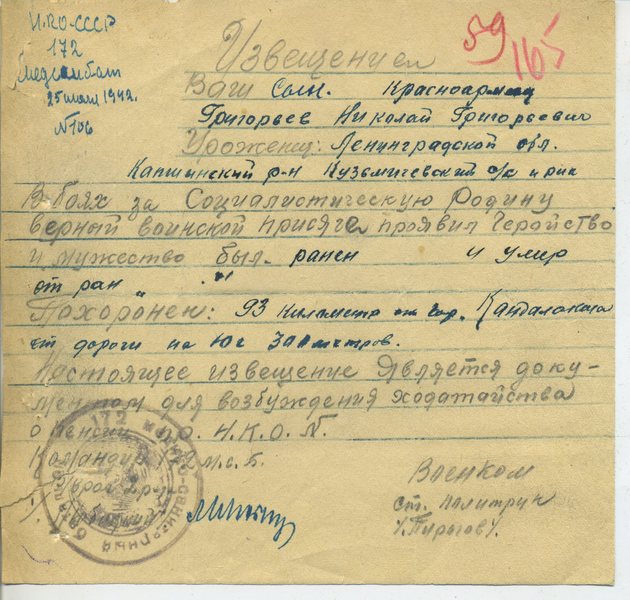 Н.КО-СССР
172
Медсанбат
25 мая 1942.
№106
59
165
Извещение
Ваш Сын. Красноармеец
Григорьев Николай Григорьевич
Уроженец: Ленинградской обл.
Капшинский р-н Кузьмичевский с/с
В боях за Социалистическую Родину
верный воинской присяге, проявил Геройство
и мужество был ранен и умер
от ран „ "
Похоронен: 93 километр от гор. Кандалакша
от дороги на Юг 300 метров.
Настоящее извещение Является доку-
ментом для возбуждения ходатайства
о пенсии Н.К.О. №
Командир М.С.Б.
172
Военком
ст. Политрук
/Пирогов/.